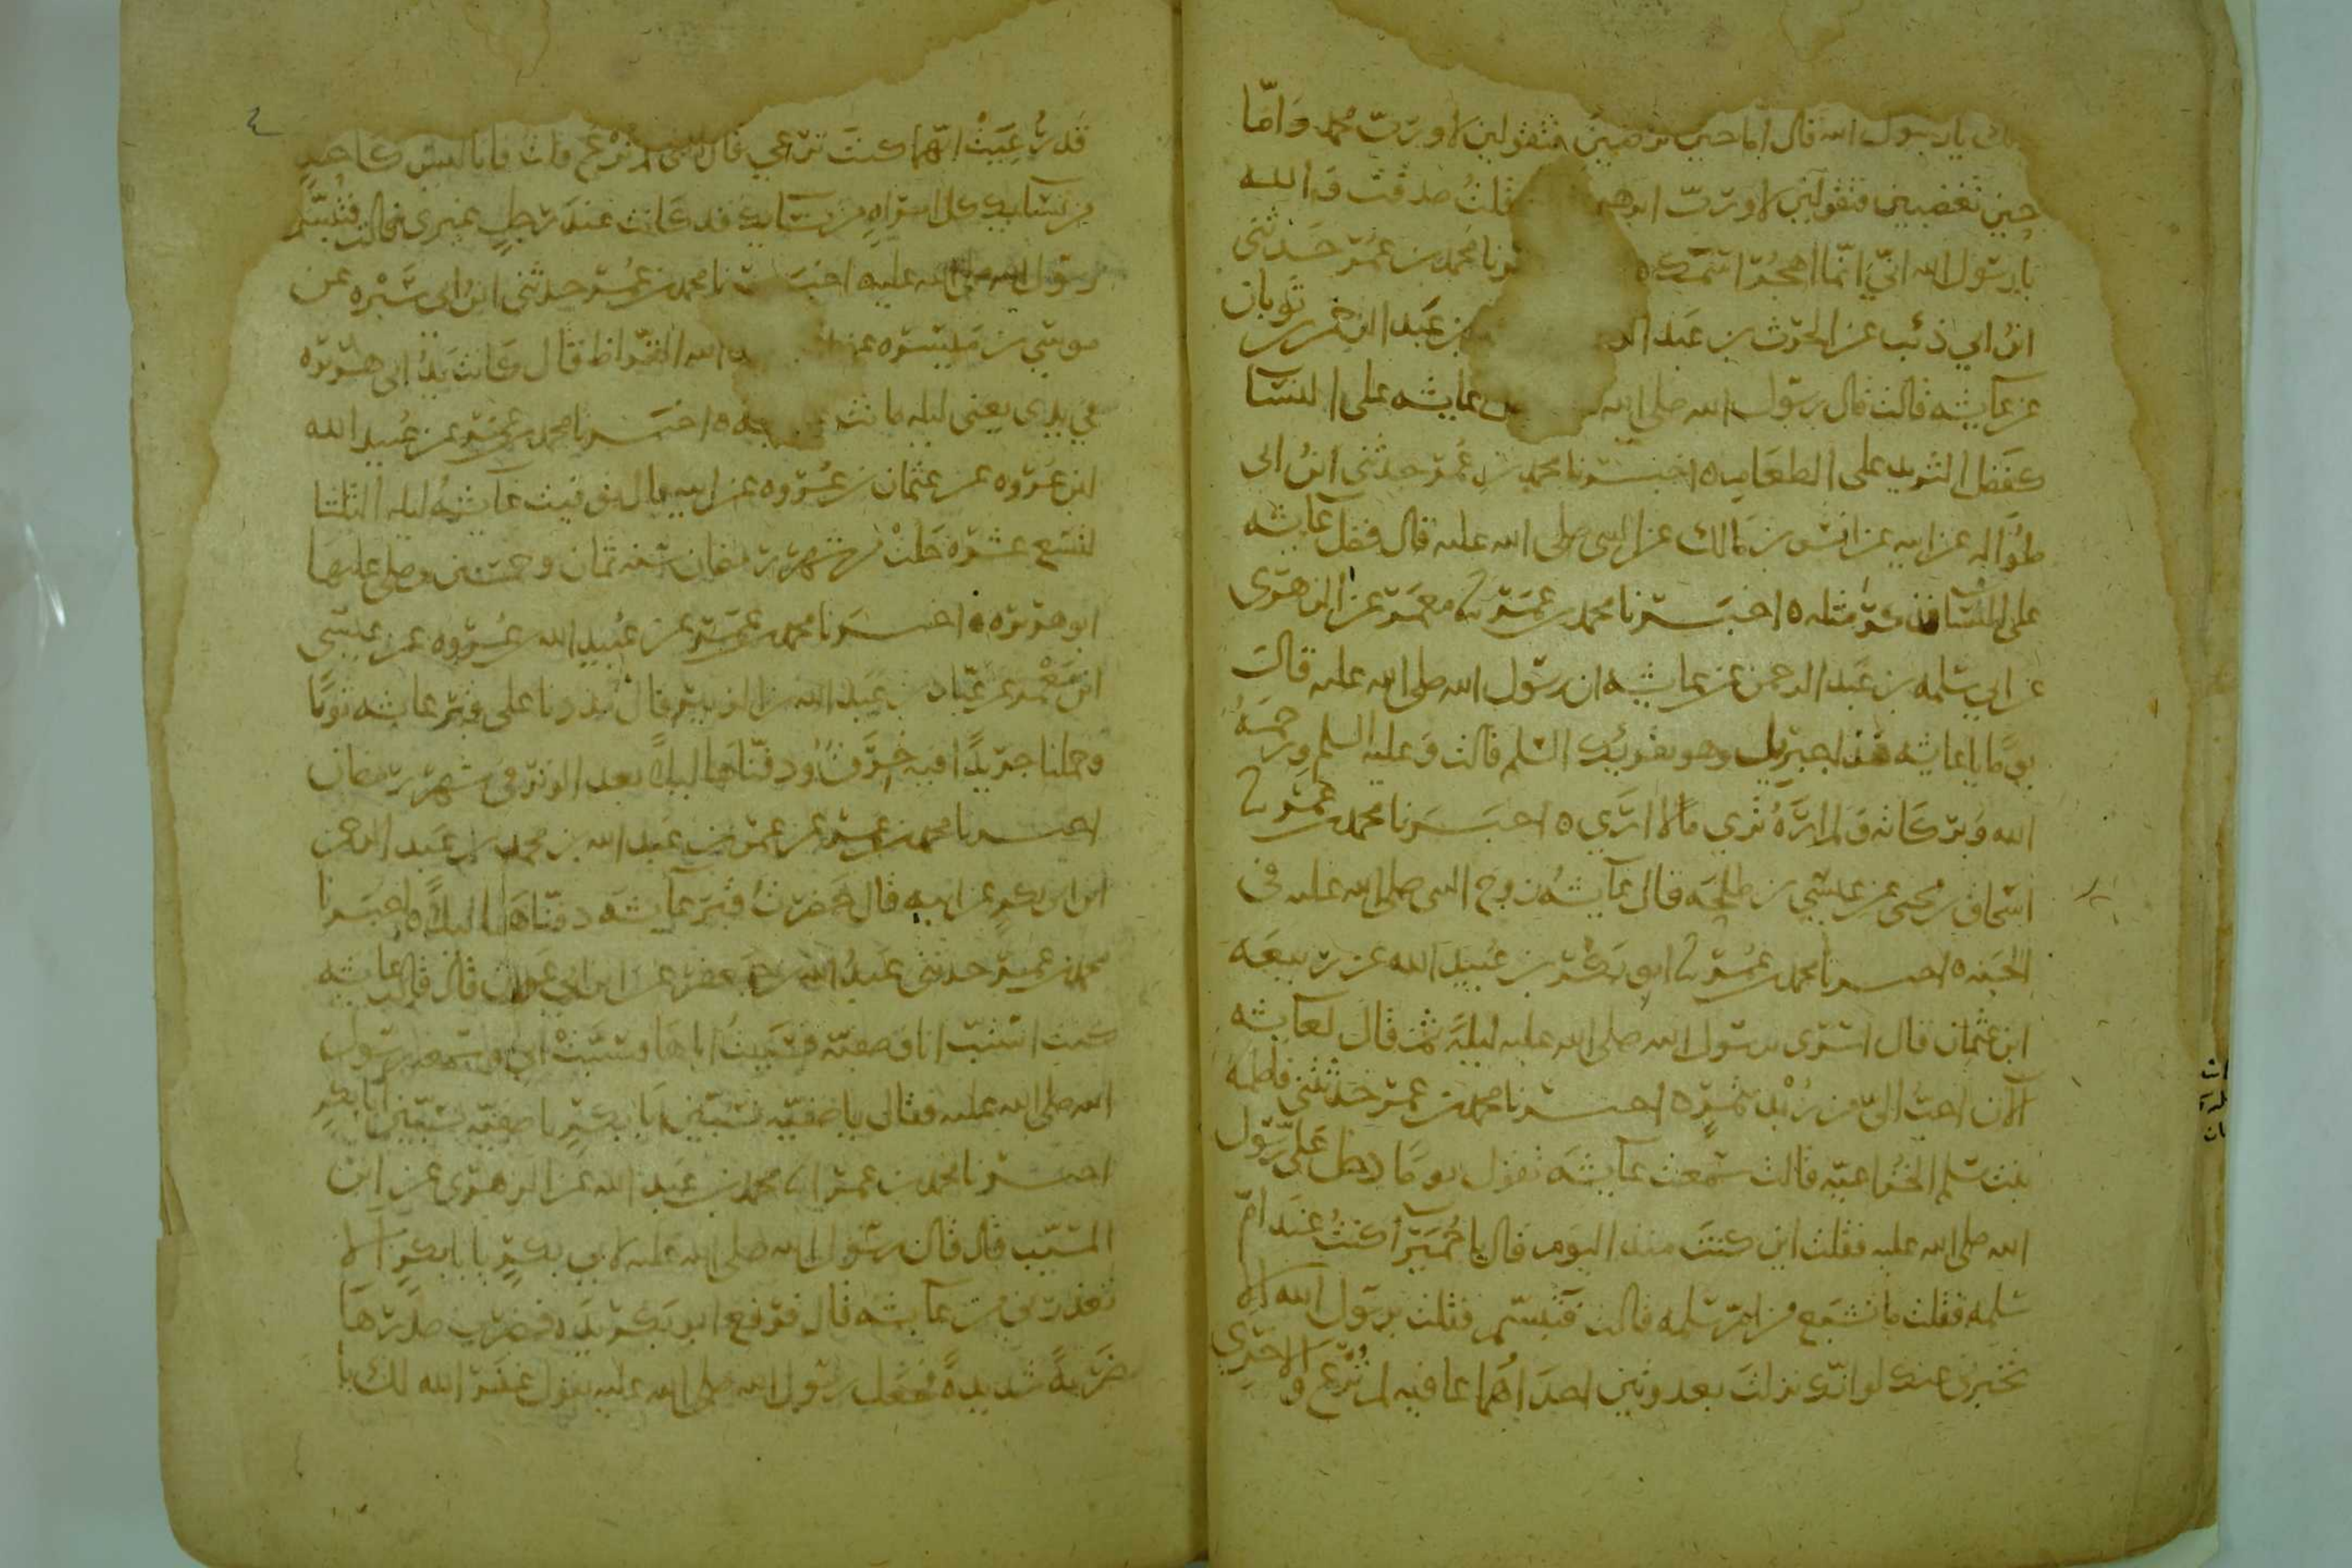 يا رسول الله قال اما حين ترضين فتقولين لا ورب محمد واما
حين تغضبين فتقولين لا ورب ابرهيم فقلت صدقت والله
يا رسول الله اني انما اهجر اسمك ه نا محمد بن عمر حدثني
ابن ابي ذئب عن الحرث بن عبد الر بن عبد الرحمن بن ثوبان
عن عايشه قالت قال رسول الله صلى الله عايشه على النسا
كفضل الثريد على الطعام ه اخبرنا محمد بن عمر حدثني ابن ابي
طواله عن ابيه عن انس بن مالك عن النبي صلى الله عليه قال فضل عايشه
على النسا مثله ه اخبرنا محمد بن عمر نا معمر عن الزهري
عن ابي سلمه بن عبد الرحمن عن عايشه ان رسول الله صلى الله عليه قالت
يوما يا عايشه هذا جبريل وهو يقريك السلم قالت وعليه السلم ورحمة
الله وبركاته ولم اره ترى ما لا ارى ه اخبرنا محمد بن عمر نا
اسحاق بن يحيى عن عيسى بن طلحه قال عايشه زوج النبي صلى الله عليه في
الجنه ه اخبرنا محمد بن عمر نا ابو بكر بن عبيد الله عن ربيعه
ابن عثمان قال اسرى رسول الله صلى الله عليه ليلة ثم قال لعايشه
لانت احب الي من زبد بتمر ه اخبرنا محمد بن عمر حدثتني فاطمه
بنت مسلم الخزاعيه قالت سمعت عايشه تقول يوما دخل علي رسول
الله صلى الله عليه فقلت اين كنت منذ اليوم قال يا حميرا كنت عند ام
سلمه فقلت ما تشبع من ام سلمه قالت فتبسم فقلت يرسول الله الا
تخبرني عنك لو انك نزلت بعدوتين احداهما عافيه لم ترع والاخرى
قد رعيت ايهما كنت ترعى قال التي لم ترع قلت فانا ليس كاحد
من نسايك كل امراه من نسايك قد كانت عند رجل غيري قالت فتبسم
رسول الله صلى الله عليه اخبرنا محمد بن عمر حدثني ابن ابي سبره عن
موسى بن ميسره عن الله القراظ قال كانت يد ابي هريره
في يدي يعني ليله ماتت ه اخبرنا محمد بن عمر عن عبيد الله
ابن عروه عن عثمان بن عروه عن ابيه قال توفيت عايشه ليله الثلثا
لتسع عشره خلت من شهر رمضان سنه ثمان وخمسين وصلى عليها
ابو هريره ه اخبرنا محمد بن عمر عن عبيد الله بن عروه عن عيسى
ابن معمر عن عباد بن عبد الله بن الزبير قال مددنا على قبر عايشه ثوبا
وحملنا جريدا فيه خرق ودفناها ليلا بعد الوتر في شهر رمضان
اخبرنا محمد بن عمر عن عمر بن عبد الله بن محمد بن عبد الرحمن
ابن ابي بكر عن ابيه قال حضرت قبر عايشه دفناها ليلا ه اخبرنا
محمد بن عمر حدثني عبد الله بن جعفر عن ابن ابي عون قال قالت عايشه
كنت استب انا وصفيه فسببت اباها وسبت ابي وسمعه رسول
الله صلى الله عليه فقال يا صفيه تسبين ابا بكر يا صفيه تسبين ابا بكر
اخبرنا محمد بن عمر نا محمد بن عبد الله عن الزهري عن ابن
المسيب قال قال رسول الله صلى الله عليه لابي بكر يا با بكر الا
تعذرني من عايشه قال فرفع ابو بكر يده فضرب صدرها
ضربة شديدة فجعل رسول الله صلى الله عليه يقول غفر الله لك يا